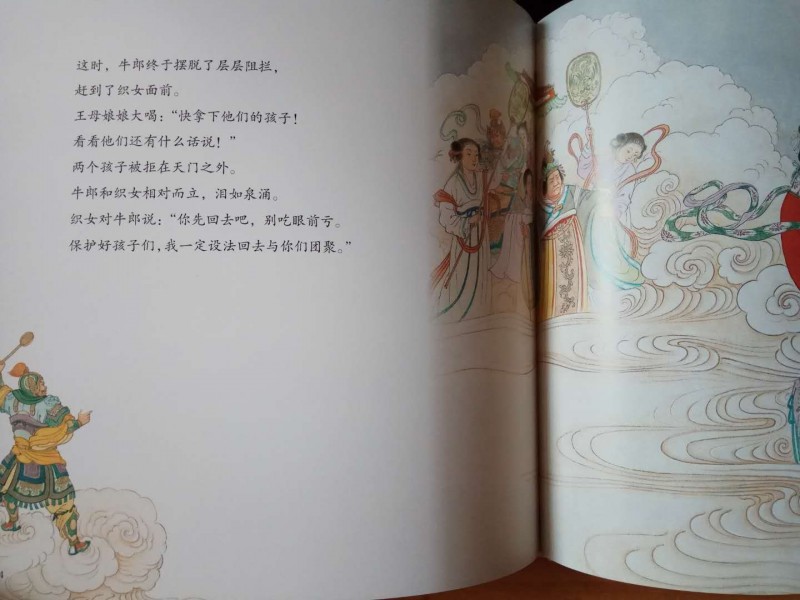 这时，牛郎终于摆脱了层层阻拦，
赶到了织女面前。
王母娘娘大喝：“快拿下他们的孩子！
看看他们还有什么话说！”
两个孩子被拒在天门之外。
牛郎和织女相对而立，泪如泉涌。
织女对牛郎说：“你先回去吧，别吃眼前亏。
保护好孩子们，我一定设法回去与你们团聚。”